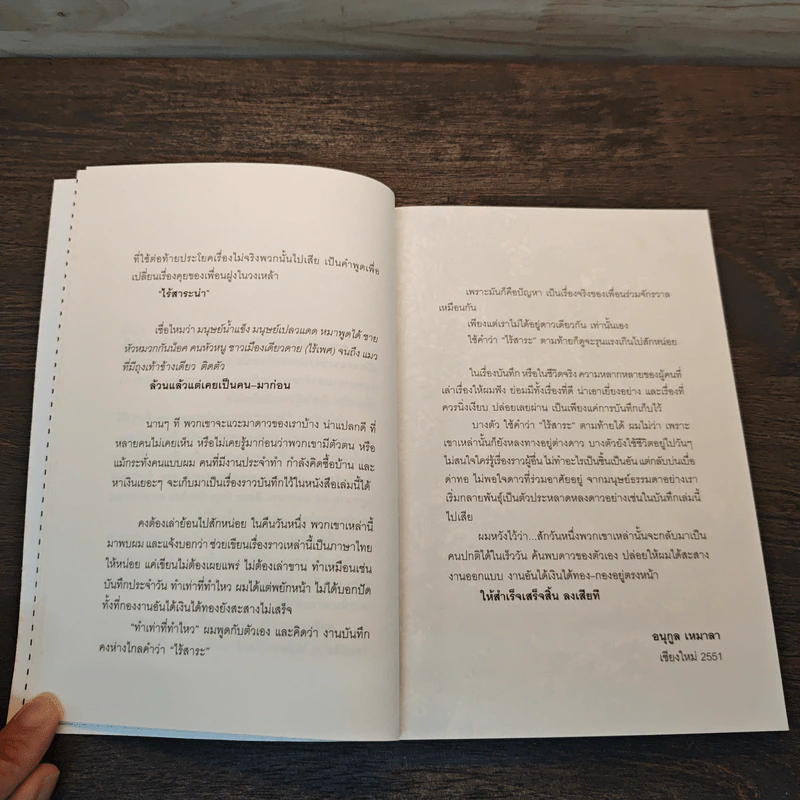 ที่ใช้ต่อท้ายประโยคเรื่องไม่จริงพวกนั้นไปเสีย เป็นคำพูดเพื่อ
เปลี่ยนเรื่องคุยของเพื่อนฝูงในวงเหล้า
"ไร้สาระน่า"
เชื่อไหมว่า มนุษย์น้ำแข็ง มนุษย์เปลวแดด หมาพูดได้ ชาย
หัวหมวกกันน็อค คนหัวหนู ชาวเมืองเดียวดาย (ไร้เพศ) จนถึง แมว
ที่มีถุงเท้าข้างเดียว ติดตัว
ล้วนแล้วแต่เคยเป็นคน–มาก่อน
นานๆ ที พวกเขาจะแวะมาดาวของเราบ้าง น่าแปลกดี ที่
หลายคนไม่เคยเห็น หรือไม่เคยรู้มาก่อนว่าพวกเขามีตัวตน หรือ
แม้กระทั่งคนแบบผม คนที่มีงานประจำทำ กำลังคิดซื้อบ้าน และ
หาเงินเยอะๆ จะเก็บมาเป็นเรื่องราวบันทึกไว้ในหนังสือเล่มนี้ได้
คงต้องเล่าย้อนไปสักหน่อย ในคืนวันหนึ่ง พวกเขาเหล่านี้
มาพบผม และแจ้งบอกว่า ช่วยเขียนเรื่องราวเหล่านี้เป็นภาษาไทย
ให้หน่อย แค่เขียนไม่ต้องเผยแพร่ ไม่ต้องเล่าขาน ทำเหมือนเช่น
บันทึกประจำวัน ทำเท่าที่ทำไหว ผมได้แต่พยักหน้า ไม่ได้บอกปัด
ทั้งที่กองงานอันได้เงินได้ทองยังสะสางไม่เสร็จ
"ทำเท่าที่ทำไหว" ผมพูดกับตัวเอง และคิดว่า งานบันทึก
คงห่างไกลคำว่า "ไร้สาระ"
เพราะมันก็คือปัญหา เป็นเรื่องจริงของเพื่อนร่วมจักรวาล
เหมือนกัน
เพียงแต่เราไม่ได้อยู่ดาวเดียวกัน เท่านั้นเอง
ใช้คำว่า "ไร้สาระ" ตามท้ายก็ดูจะรุนแรงเกินไปสักหน่อย
ในเรื่องบันทึก หรือในชีวิตจริง ความหลากหลายของผู้คนที่
เล่าเรื่องให้ผมฟัง ย่อมมีทั้งเรื่องที่ดี น่าเอาเยี่ยงอย่าง และเรื่องที่
ควรนิ่งเงียบ ปล่อยเลยผ่าน เป็นเพียงแค่การบันทึกเก็บไว้
บางตัว ใช้คำว่า "ไร้สาระ" ตามท้ายได้ ผมไม่ว่า เพราะ
เขาเหล่านั้นก็ยังหลงทางอยู่ต่างดาว บางตัวยังใช้ชีวิตอยู่ไปวันๆ
ไม่สนใจใคร่รู้เรื่องราวผู้อื่น ไม่ทำอะไรเป็นชิ้นเป็นอัน แต่กลับบ่นเบื่อ
ด่าทอ ไม่พอใจดาวที่ร่วมอาศัยอยู่ จากมนุษย์ธรรมดาอย่างเรา
เริ่มกลายพันธุ์เป็นตัวประหลาดหลงดาวอย่างเช่นในบันทึกเล่มนี้
ไปเสีย
ผมหวังไว้ว่า...สักวันหนึ่งพวกเขาเหล่านั้นจะกลับมาเป็น
คนปกติได้ในเร็ววัน ค้นพบดาวของตัวเอง ปล่อยให้ผมได้สะสาง
งานออกแบบ งานอันได้เงินได้ทอง-กองอยู่ตรงหน้า
ให้สำเร็จเสร็จสิ้น ลงเสียที
อนุกูล เหมาลา
เชียงใหม่ 2551